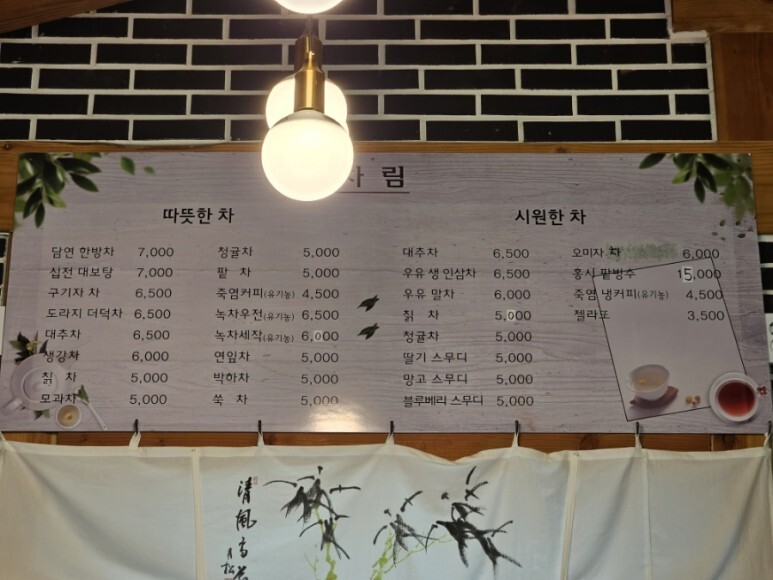 림
따뜻한 차
담연 한방차 7,000
십전 대보탕 7,000
구기자 차 6,500
도라지 더덕차 6,500
대추차 6,500
생강차 6,000
칡 차 5,000
모과차 5,000
청귤차 5,000
팥 차 5,000
죽염커피(유기농) 4,500
녹차우전(유기농) 6,500
녹차세작(유기농) 6,000
연잎차 5,000
박하차 5,000
쑥 차 5,000
시원한 차
대추차 6,500
우유 생 인삼차 6,500
우유 말차 6,000
칡 차 5,000
청귤차 5,000
딸기 스무디 5,000
망고 스무디 5,000
블루베리 스무디 5,000
오미자 차 6,000
홍시 팥빙수 15,000
죽염 냉커피(유기농) 4,500
젤라또 3,500
清風